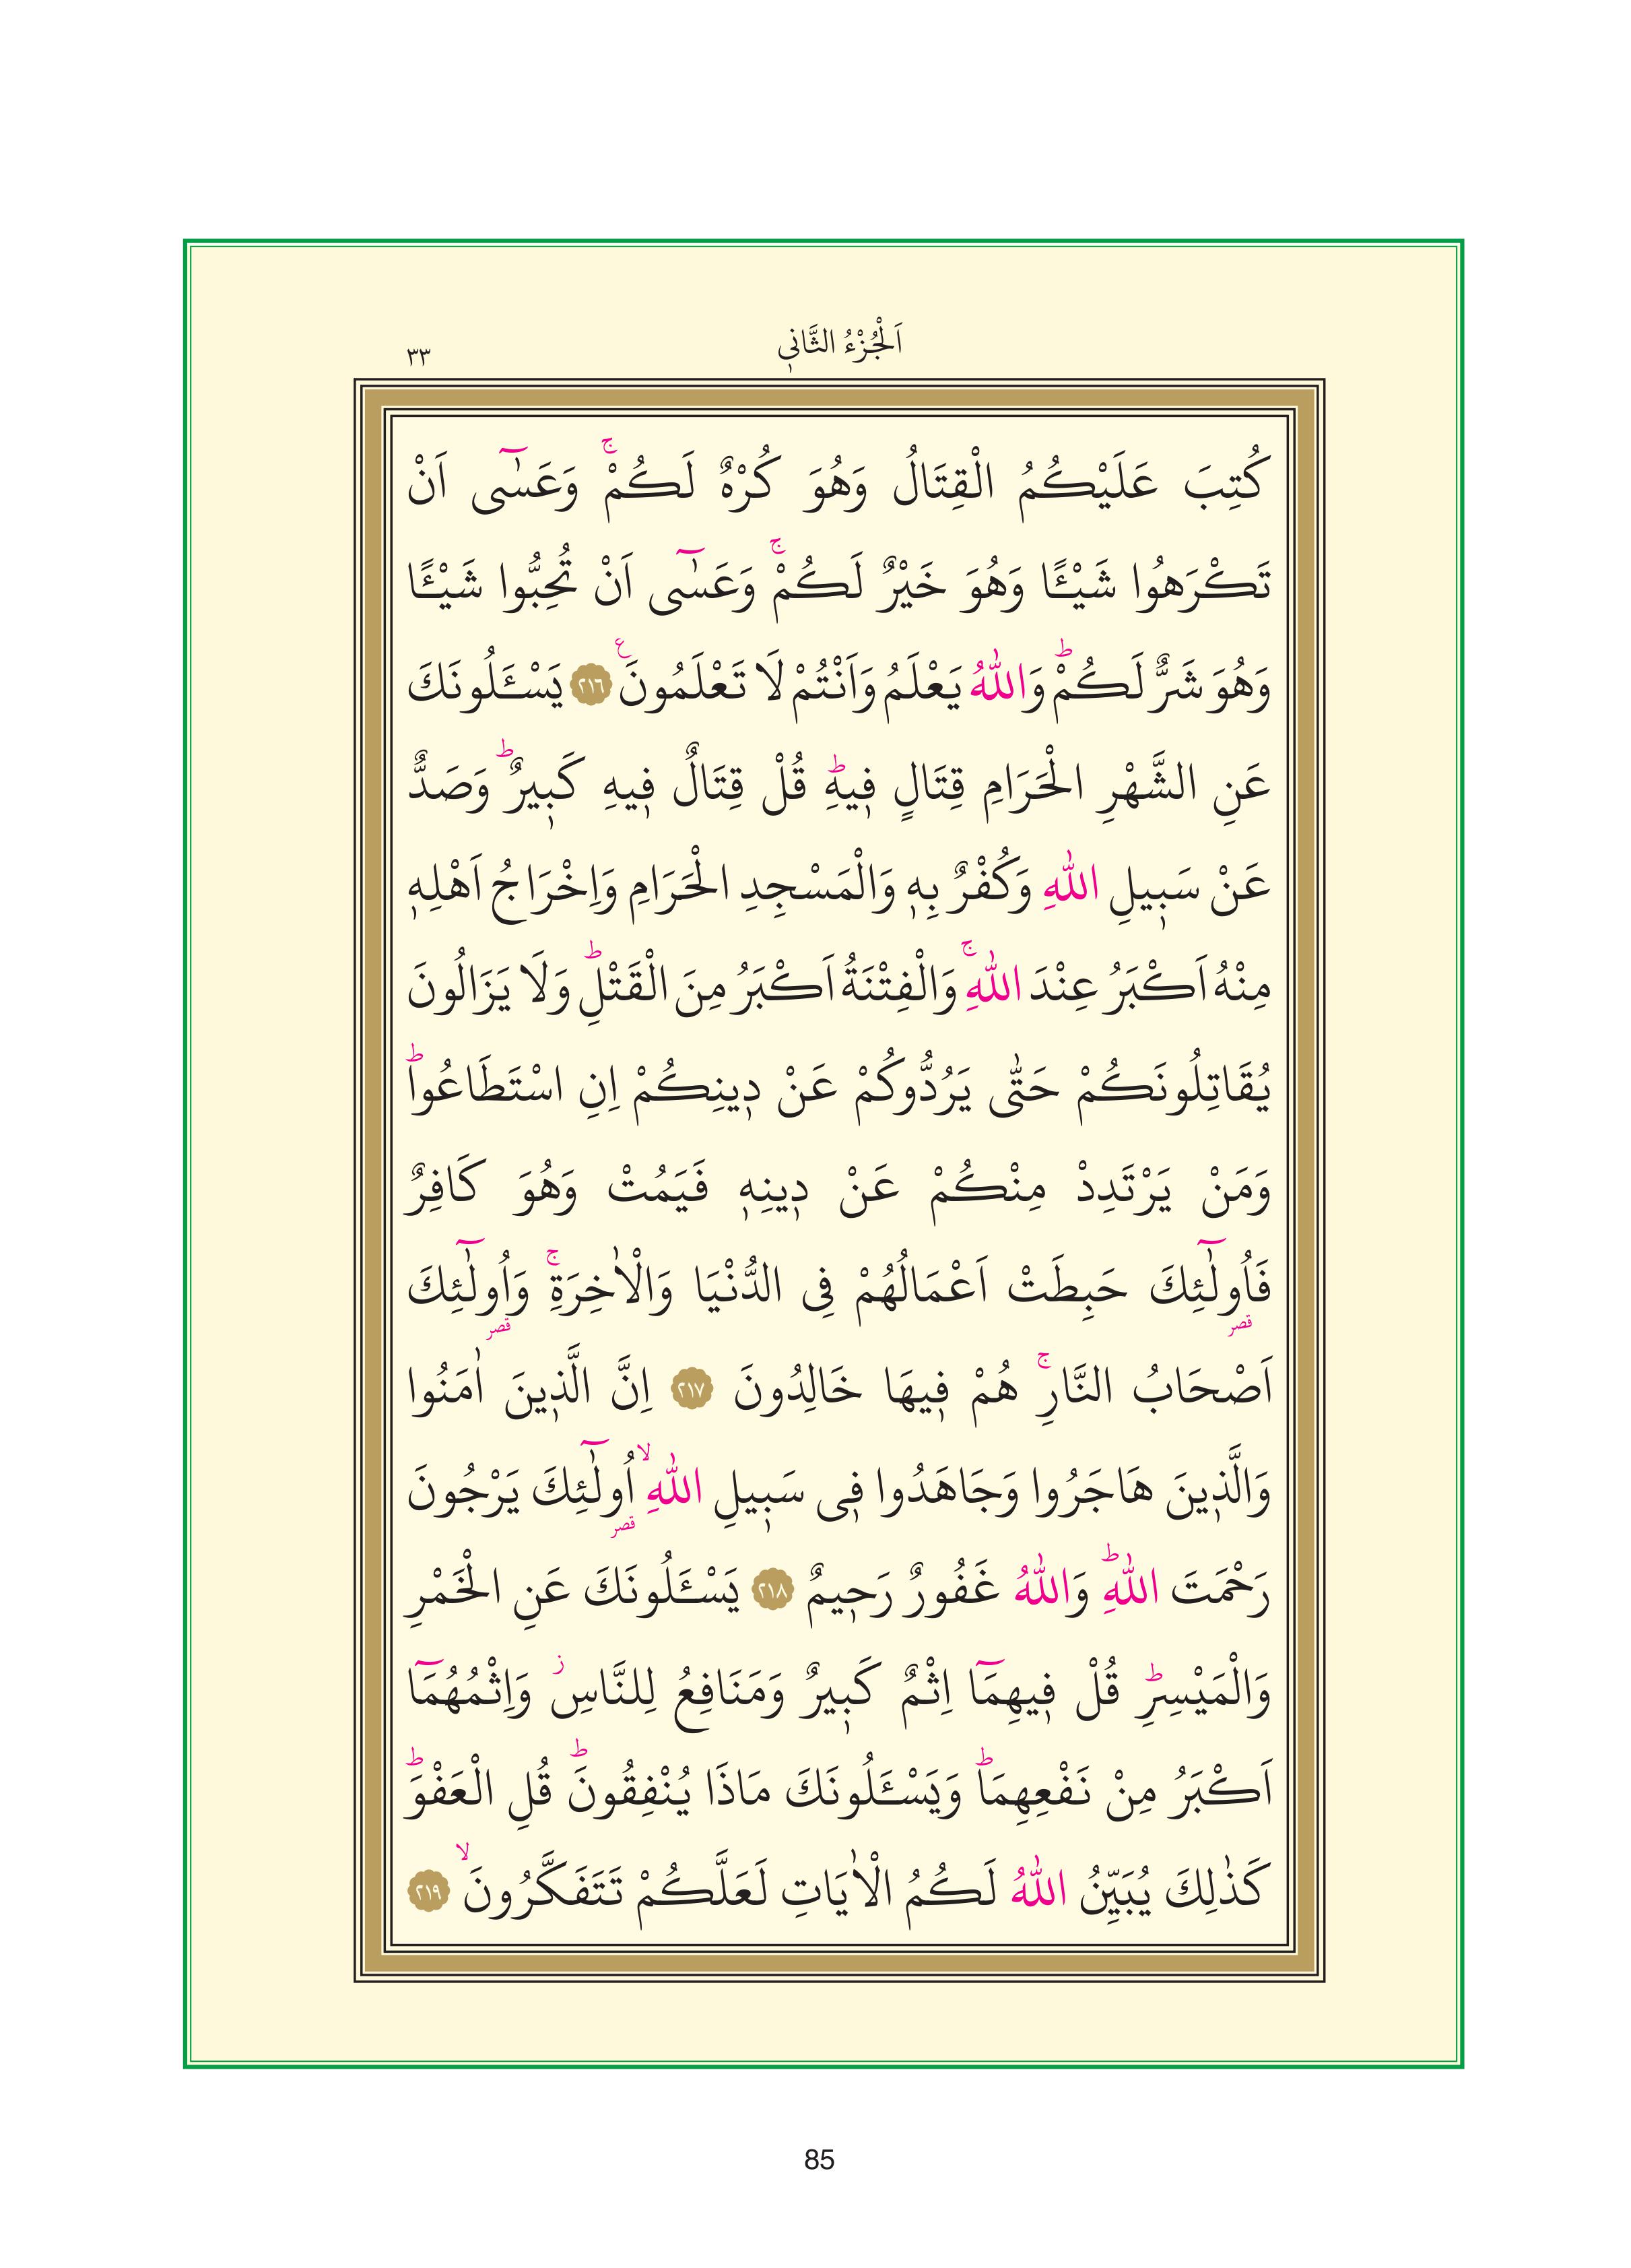 اَلْجُزْءُ الثَّانٖي
٣٣
كُتِبَ عَلَيْكُمُ الْقِتَالُ وَهُوَ كُرْهٌ لَكُمْۚ وَعَسٰٓى اَنْ
تَكْرَهُوا شَيْـًٔا وَهُوَ خَيْرٌ لَكُمْۚ وَعَسٰٓى اَنْ تُحِبُّوا شَيْـًٔا
وَهُوَ شَرٌّ لَكُمْؕ وَاللّٰهُ يَعْلَمُ وَاَنْتُمْ لَا تَعْلَمُونَࣖ ﴿٢١٦﴾ يَسْـَٔلُونَكَ
عَنِ الشَّهْرِ الْحَرَامِ قِتَالٍ فٖيهِؕ قُلْ قِتَالٌ فٖيهِ كَبٖيرٌؕ وَصَدٌّ
عَنْ سَبٖيلِ اللّٰهِ وَكُفْرٌ بِهٖ وَالْمَسْجِدِ الْحَرَامِ وَاِخْرَاجُ اَهْلِهٖ
مِنْهُ اَكْبَرُ عِنْدَ اللّٰهِۚ وَالْفِتْنَةُ اَكْبَرُ مِنَ الْقَتْلِؕ وَلَا يَزَالُونَ
يُقَاتِلُونَكُمْ حَتّٰى يَرُدُّوكُمْ عَنْ دٖينِكُمْ اِنِ اسْتَطَاعُواؕ
وَمَنْ يَرْتَدِدْ مِنْكُمْ عَنْ دٖينِهٖ فَيَمُتْ وَهُوَ كَافِرٌ
فَاُو۬لٰٓئِكَ حَبِطَتْ اَعْمَالُهُمْ فِى الدُّنْيَا وَالْاٰخِرَةِۚ وَاُو۬لٰٓئِكَ
قصر قصر
اَصْحَابُ النَّارِۚ هُمْ فٖيهَا خَالِدُونَ ﴿٢١٧﴾ اِنَّ الَّذٖينَ اٰمَنُوا
وَالَّذٖينَ هَاجَرُوا وَجَاهَدُوا فٖى سَبٖيلِ اللّٰهِۙ اُو۬لٰٓئِكَ يَرْجُونَ
قصر
رَحْمَتَ اللّٰهِؕ وَاللّٰهُ غَفُورٌ رَحٖيمٌ ﴿٢١٨﴾ يَسْـَٔلُونَكَ عَنِ الْخَمْرِ
وَالْمَيْسِرِؕ قُلْ فٖيهِمَٓا اِثْمٌ كَبٖيرٌ وَمَنَافِعُ لِلنَّاسِؗ وَاِثْمُهُمَٓا
اَكْبَرُ مِنْ نَفْعِهِمَاؕ وَيَسْـَٔلُونَكَ مَاذَا يُنْفِقُونَؕ قُلِ الْعَفْوَؕ
كَذٰلِكَ يُبَيِّنُ اللّٰهُ لَكُمُ الْاٰيَاتِ لَعَلَّكُمْ تَتَفَكَّرُونَۙ ﴿٢١٩﴾
85